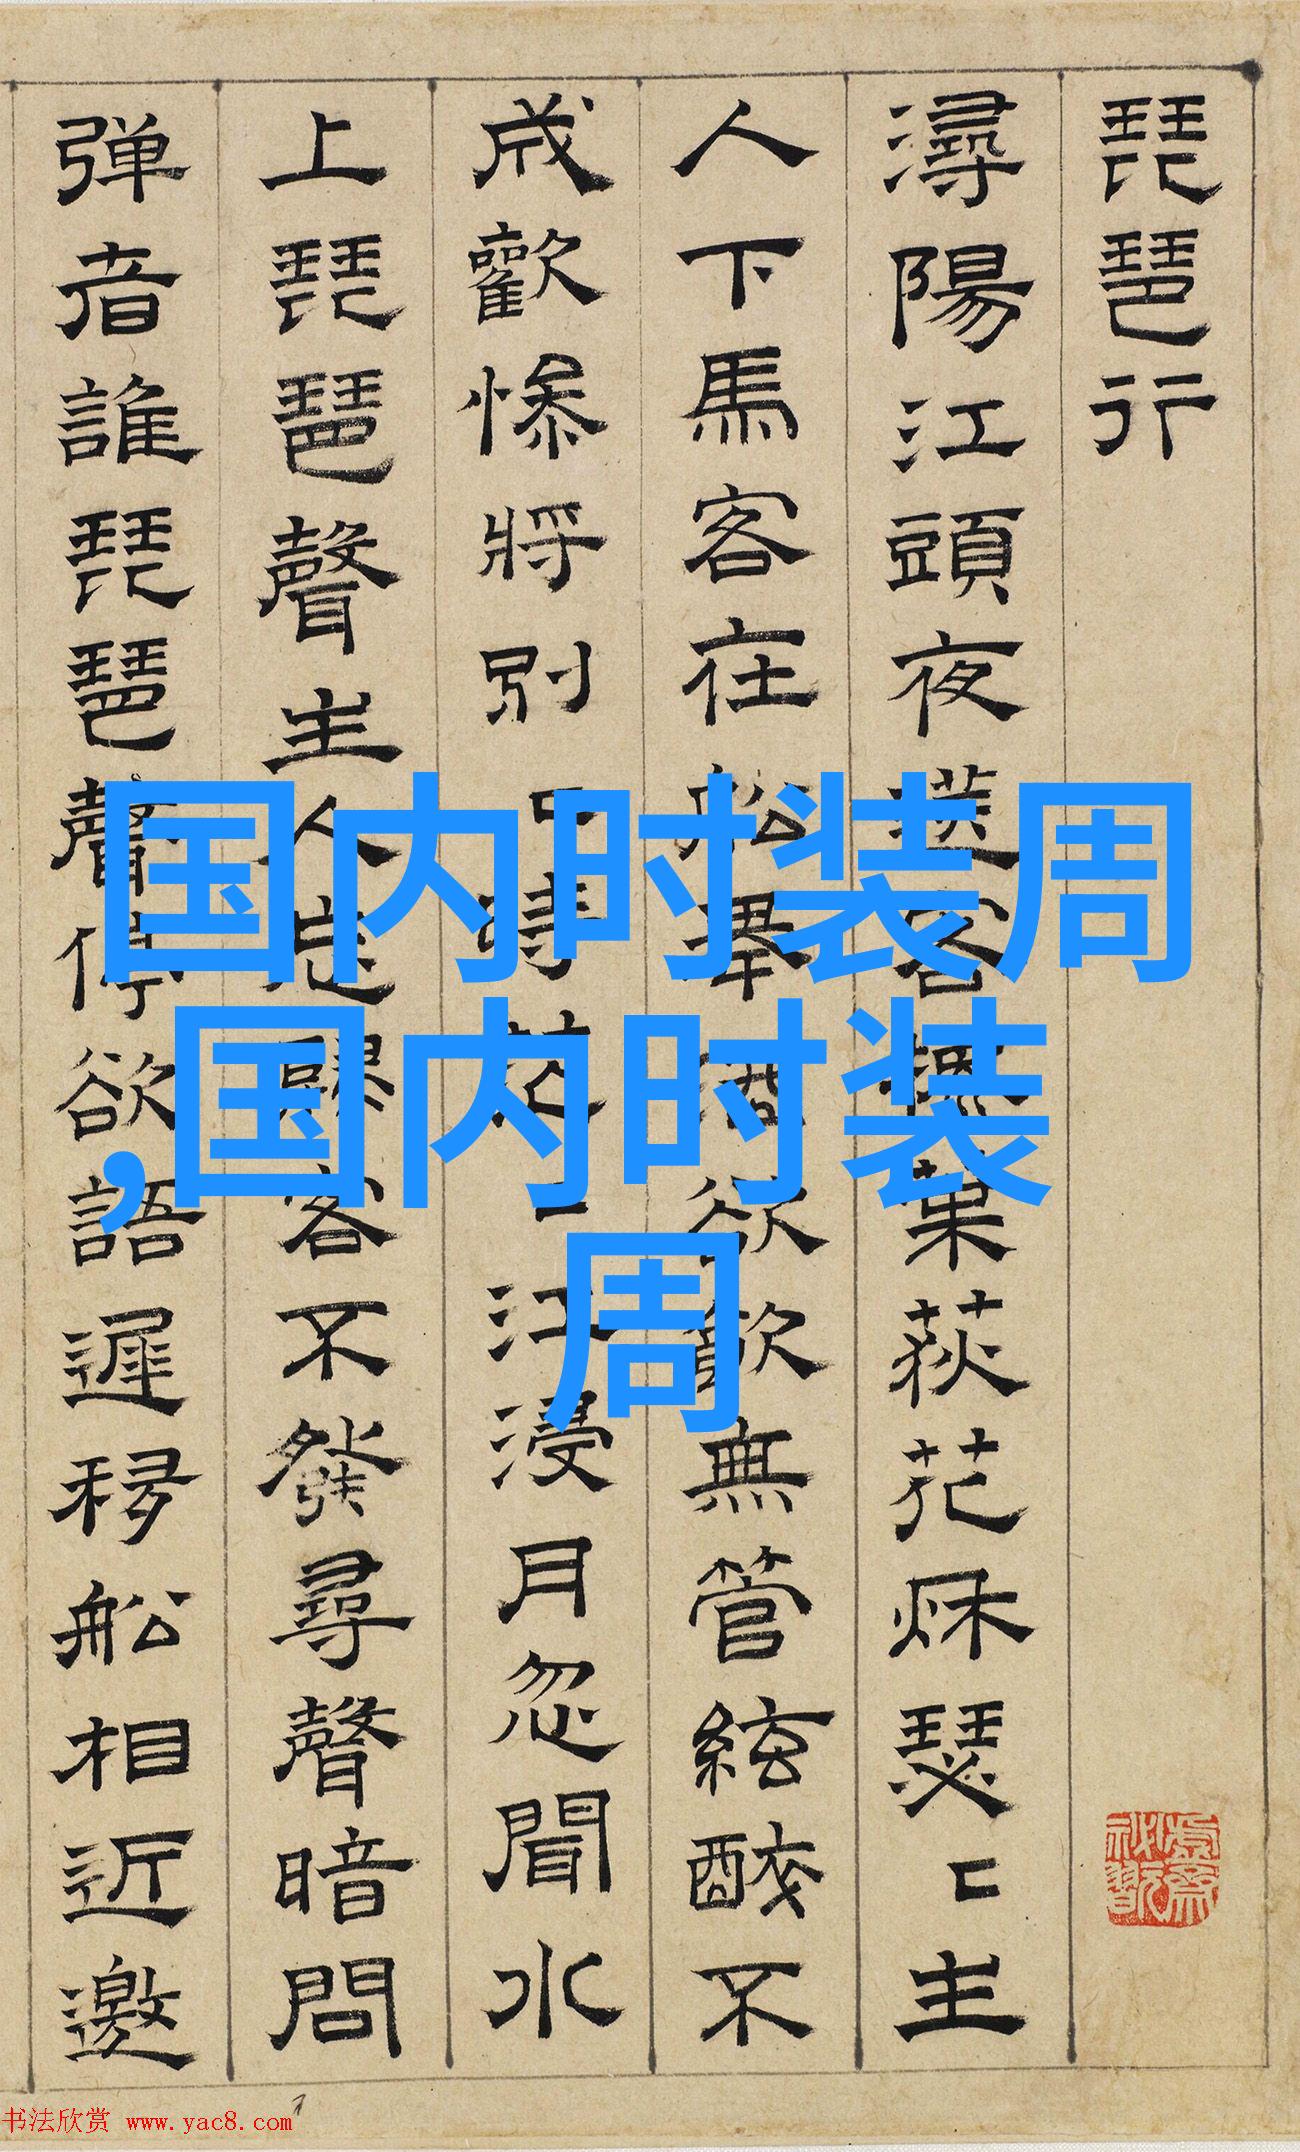 琵琶行
潯陽江頭夜送客楓葉荻花秌瑟〻主
人下馬客在船舉酒欲飲無管絃醉不
成歡慘將別〻時茫〻江浸月忽聞水
上琵琶聲主人忘歸客不發尋聲暗問
弹者誰琵琶聲停欲語遲移船相近邀
国内时装周
,国内时装
周
书法欣赏 www.yac8.com